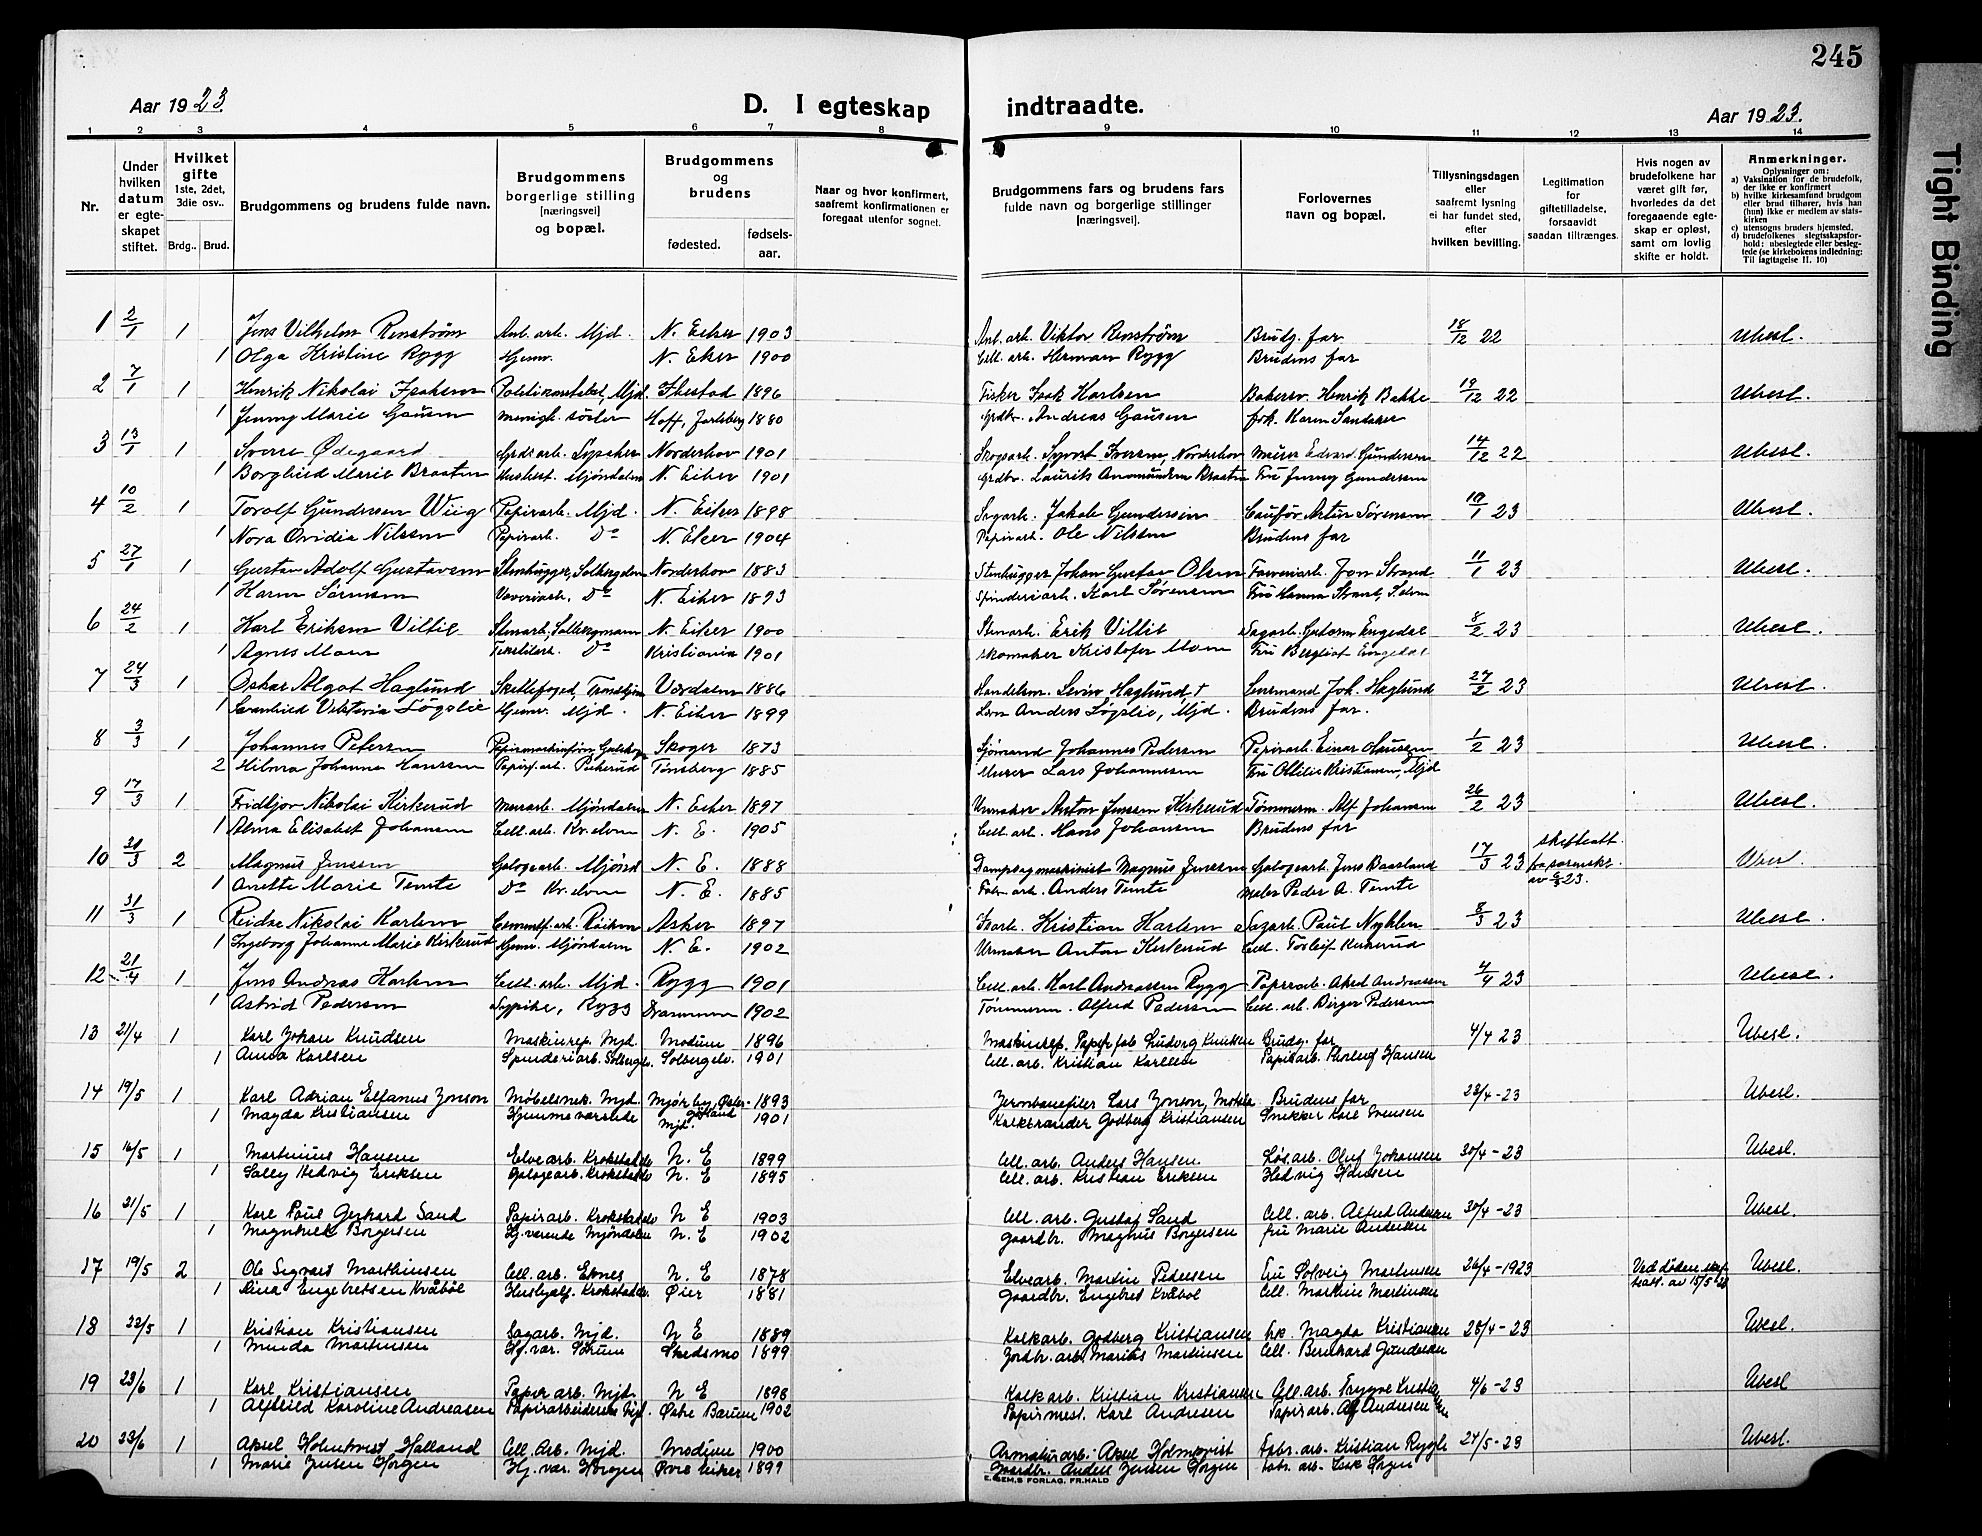 245
Aar 1923.
D. I egteskap indtraadte.
Aar 1923.
1 2 3 4 5 6 7 8 9 10 11 12 13 14
Nr.
Under hvilken datum er egte-skapet stiftet.
Hvilket gifte 1ste, 2det, 3die osv..
Brdg.. Brud.
Brudgommens og brudens fulde navn.
Brudgommens borgerlige stilling [næringsvei] og bopæl.
Brudgommens og brudens
fødested.
fødsels-aar.
Naar og hvor konfirmert, saafremt konfirmationen er foregaat utenfor sognet.
Brudgommens fars og brudens fars fulde navn og borgerlige stillinger [næringsvei].
Forlovernes navn og bopæl.
Tillysningsdagen eller saafremt lysning ei har fundet sted, efter hvilken bevilling.
Legitimation for giftetilladelse, forsaavidt saadan tiltrænges.
Hvis nogen av brudefolkene har været gift før, hvorledes da det foregaaende egte-skap er opløst, samt om lovlig skifte er holdt.
Anmerkninger.
Oplysninger om:
a) Vaksination for de brudefolk, der ikke er konfirmert
b) hvilke kirkesamfund brudgom eller brud tilhører, hvis han (hun) ikke er medlem av stats-kirken
c) utensogns bruders hjemsted.
d) brudefolkenes slegtsskapsfor-hold: ubeslegtede eller besleg-tede (se kirkebokens indledning: Til iagttagelse II. 10)
1 2/1 1 Jens Vilhelm Renström Anl. arb. Mjd. N. Eiker 1903 Anl. arb. Viktor Renström Brudg. far 18/12 22 Ubesl.
1 Olga Kristine Rygg Hjemv. N. Eiker 1900 Cell. arb. Herman Rygg Brudens far
2 7/1 1 Henrik Nikolai Isaksen Politikonstabel, Mjd. Ibestad 1896 Fisker Isak Karlsen Bakersv. Henrik Bakke 19/12 22 Ubesl.
1 Jenny Marie Gausen menigh. söster Hoff, Jarlsberg 1880 Grdbr. Andreas Gausen frk. Karen Sandaker
3 13/1 1 Sverre Ødegaard Grdsarb. Lysaker Norderhov 1901 Skogsarb. Syvert Iversen, Norderhov Murer Edvard Gundersen 14/12 22 Ubesl.
1 Borghild Marie Braaten Mjöndalen N. Eiker 1901 Grdbr. Laurits Amundsen Braaten Fru Jenny Gundersen
4 10/2 1 Torolf Gundersen Wiig Papirarb. Mjd. N. Eiker 1898 Sagarb. Jakob Gundersen Cauför Artur Sörensen 10/1 23 Ubesl.
1 Nora Ovidia Nilsen Papirarb. Do N. Eker 1904 Papirarb. Ole Nilsen Brudens far
5 27/1 1 Gustav Adolf Gustavsen Stenhugger, Solbergelven Norderhov 1883 Stenhugger Johan Gustav Olsen Farveriarb. Jon Strand 11/1 23 Ubesl.
1 Karen Sörensen Veveriarb. Do N. Eiker 1893 Spinderiarb. Karl Sörensen Fru Hanna Strand, S.elven
6 24/2 1 Karl Eriksen Viltil Stenarb. N. Eiker 1900 Stenarb. Erik Viltil Sagarb. Guttorm Engedal 8/2 23 Ubesl.
1 Agnes Moen Do Kristiania 1901 Skomaker Kristofer Moen Fru Bergliot Engedal
7 24/3 1 Oskar Algot Haglund Verdalen 1886 Handelsm. Levin Haglund † Lensmand Joh. Haglund 27/2 23 Ubesl.
1 Svanhild Viktoria Lögslie Hjemv. Mjd. N. Eiker 1899 Anders Lögslie, Mjd. Brudens far.
8 3/3 1 Johannes Petersen Skoger 1873 Sjömand Johannes Pedersen Papirarb. Einar Hansen 1/2 23 Ubesl.
2 Hilma Johanne Hansen Papirf. arb. Tönsberg 1885 Murer Lars Johannesen Fru Ottilie Kristiansen, Mjd
9 17/3 1 Fridtjov Nikolai Kirkerud Murarb. Mjöndalen N. Eiker 1897 Urmaker Anton Jensen Kirkerud Tömmerm. Alf Johansen 26/2 23 Ubesl.
1 Alma Elisabet Johansen Cell. arb. Kr. elven N. E. 1905 Cell. arb. Hans Johansen Brudens far
10 31/3 2 Magnus Jensen Galogearb. Mjönd N. E. 1888 Dampsagmaskinist Magnus Jenssen Galogearb. Jens Baasland 17/3 23 skifteatt. fra sorenskr. av 6/3 23. Ubesl.
1 Anette Marie Temte Do Kr. elven N. E. 1885 Fabr. arb. Anders Temte Maler Peder A. Temte
11 31/3 1 Reidar Nikolai Karlsen Cementf. arb. Röiken Asker 1897 Kristian Karlsen Sagarb. Paul Nyhlen 8/3 23 Ubesl.
1 Ingeborg Johanne Marie Kirkerud Hjemv. Mjöndalen N. E. 1902 Urmaker Anton Kirkerud Cell. Torleif Kirkerud
12 21/4 1 Jens Andreas Karlsen Cell. arb. Mjd. Rygg 1901 Cell. arb. Karl Andreassen Rygg Papirarb. Aksel Andreassen 4/4 23 Ubesl.
1 Astrid Pedersen Sypike, Rygg Drammen 1902 Tömmerm. Alfred Pedersen Cell. arb. Birger Pedersen
13 21/4 1 Karl Johan Knudsen Maskinrep. Mjd. Modum 1896 Maskinrep. Papir fab Ludvig Knudsen Brudg. far 4/4 23 Ubesl.
1 Anna Karlsen Spinderiarb. Solbergelv. Solbergelv. 1901 Cell. arb. Kristian Karlsen Papirarb. Thoralf Hansen
14 19/5 1 Karl Adrian Elfanus Jonson Möbelsnek. Mjd. Mjölby, Öster-götland 1893 Jernbanefiler Lars Jonson, Motala Brudens far 28/4-23 Ubesl.
1 Magda Kristiansen Hjemmeværende Mjd. 1901 Kalkbrænder Godberg Kristiansen Snekker Karl Svensen
15 16/5 1 Martinius Hansen Elvearb. Krokstadelv N. E 1899 Cell. arb. Anders Hansen Løs.arb. Oluf Johansen 30/4-23 Ubesl.
1 Sally Hedvig Eriksen Galogearb. Krokstadelv N. E 1895 Cell. arb. Kristian Eriksen Hedvig Hansen
16 21/5 1 Karl Paul Gerhard Sand Papirarb. Krokstadelv N E 1903 Cell. arb. Gustav Sand Cell. arb. Alfred Andersen 30/4-23 Ubesl.
1 Magnhild Borgersen Hj. værende Mjöndalen N. E 1902 Gaardbr. Magnus Borgersen fru Marie Andersen
17 19/5 2 Ole Sigvart Marthinsen Cell. arb. Eknes N. E 1878 Elvearb. Martin Pedersen Fru Solveig Martinsen 26/4-1923 Ved döden skifteatt. av 15/5 23 Ubesl.
1 Lina Engebretsen Kvåböl Krokstadelv. Öier 1881 Gaardbr. Engebret Kvåböl Cell. Martin Martinsen
18 22/5 1 Kristian Kristiansen Sagarb. Mjd. N E 1889 Kalkarb. Godberg Kristiansen frk. Magda Kristiansen 28/4-23 Ubesl.
1 Minda Martinsen Hj. vær. Sörum Skedsmo 1899 Jordbr. arb. Marius Martinsen Cell. Bernhard Gundersen
19 23/6 1 Karl Kristiansen Papir arb. Mjd. N E 1898 Kalkarb. Kristian Kristiansen Cell. arb. Trygve Kristiansen 4/6-23 Ubesl
1 Alfhild Karoline Andreasen Papirarbeiderske Mjd. Östre Bærum 1902 Papirmest. Karl Andresen Papirarb. Alf Andresen
20 23/6 1 Aksel Holmkvist Halland Cell. Arb. Mjd. Modum 1900 Armaturarb. Aksel Holmqvist Fabr. arb. Kristian Rygh 24/5-23 Ubesl.
1 Marie Jensen Horgen Hj. vær. Horgen Øvre Eiker 1899 Gaardbr. Anders Jensen Horgen fabr. arb. Isak Horgen
E. SEM.S FORLAG, FR.HALD
Tight Binding